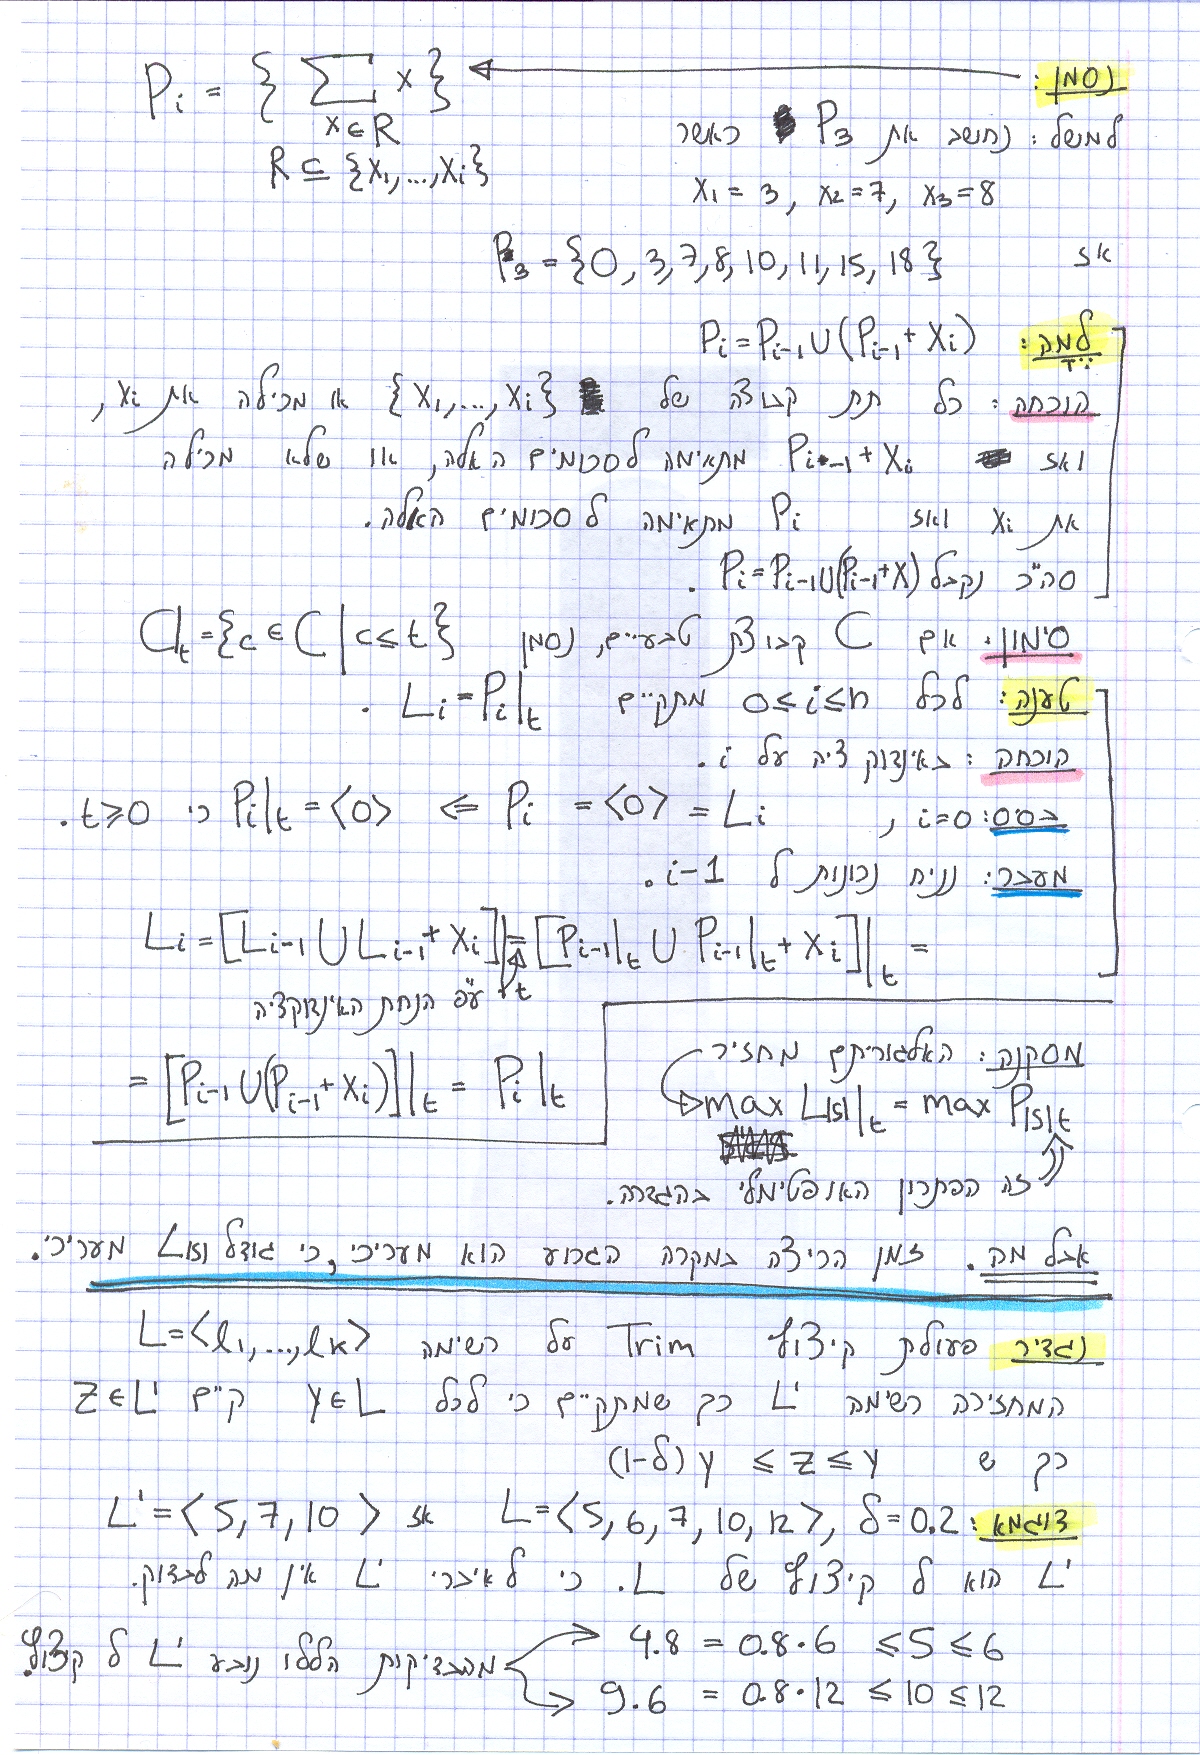 נסמן: P_i = { ∑_{x∈R} x }
R ⊆ {x_1,...,x_i}
למשל: נחשב את P_3 כאשר
x_1 = 3, x_2 = 7, x_3 = 8
אז P_3 = {0, 3, 7, 8, 10, 11, 15, 18}
למה: P_i = P_{i-1} ∪ (P_{i-1} + x_i)
הוכחה: כל תת קבוצה של {x_1,...,x_i} או מכילה את x_i,
ואז P_{i-1} + x_i מתאימה לסכומים האלה, או שלא מכילה
את x_i ואז P_i מתאימה לסכומים האלה.
סה"כ נקבל P_i = P_{i-1} ∪ (P_{i-1} + x).
סימון: אם C קבוצת טבעיים, נסמן C|_t = {c ∈ C | c ≤ t}
טענה: לכל 0 ≤ i ≤ n מתקיים L_i = P_i|_t.
הוכחה: באינדוקציה על i.
בסיס: i=0, L_i = <0> = P_i ⇐ P_i|_t = <0> כי t ≥ 0.
מעבר: נניח נכונות ל i-1.
L_i = [L_{i-1} ∪ L_{i-1} + x_i]|_t = [P_{i-1}|_t ∪ P_{i-1}|_t + x_i]|_t =
ע"פ הנחת האינדוקציה
= [P_{i-1} ∪ (P_{i-1} + x_i)]|_t = P_i|_t
מסקנה: האלגוריתם מחזיר
max L_{|S|}|_t = max P_{|S|}|_t
זה הפתרון האופטימלי בהגדרה.
אבל מה. זמן הריצה במקרה הגרוע הוא מעריכי, כי גודל L_{|S|} מעריכי.
נגדיר פעולת קיצוץ Trim על רשימה L = <l_1,...,l_k>
המחזירה רשימה L' כך שמתקיים כי לכל y ∈ L קיים z ∈ L'
כך ש (1-δ)y ≤ z ≤ y
דוגמא: L = <5, 6, 7, 10, 12>, δ = 0.2 אז L' = <5, 7, 10>
L' הוא δ קיצוץ של L. כי לאיברי L' אין מה לבדוק.
4.8 = 0.8·6 ≤ 5 ≤ 6
9.6 = 0.8·12 ≤ 10 ≤ 12
מהבדיקות הללו נובע L' δ קיצוץ.